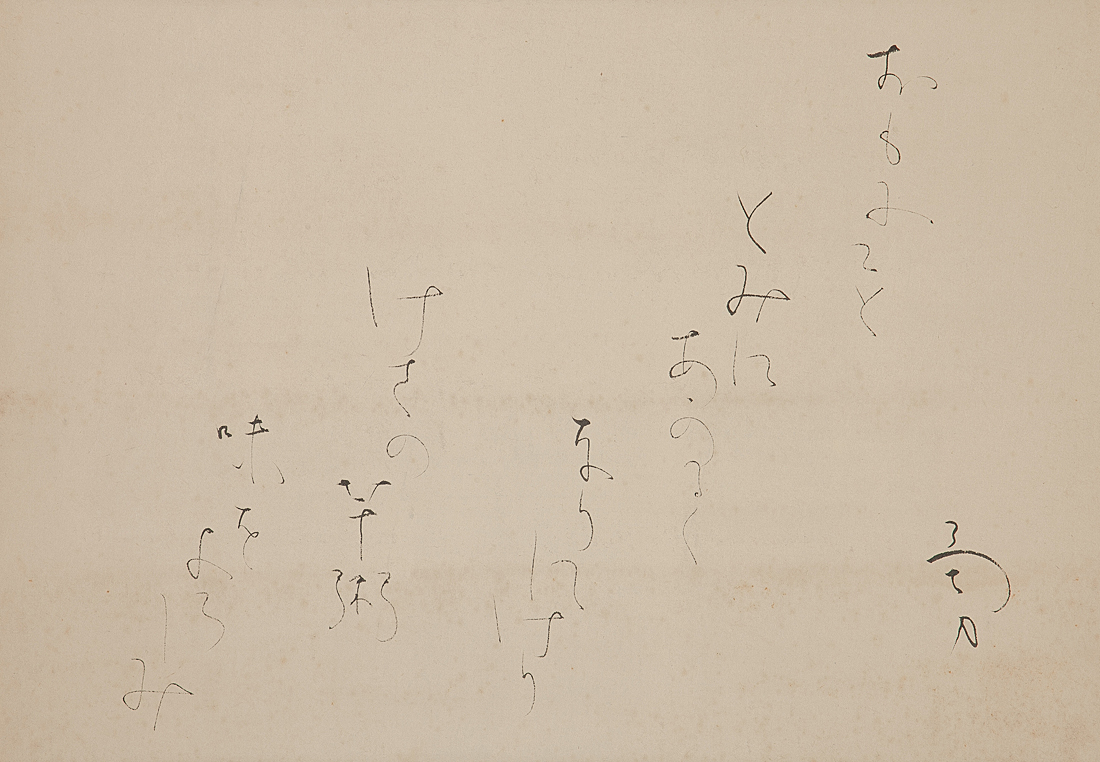 おもふこと
とみに
あかるく
なりにけり
けさの
芋粥
味を
よろしみ